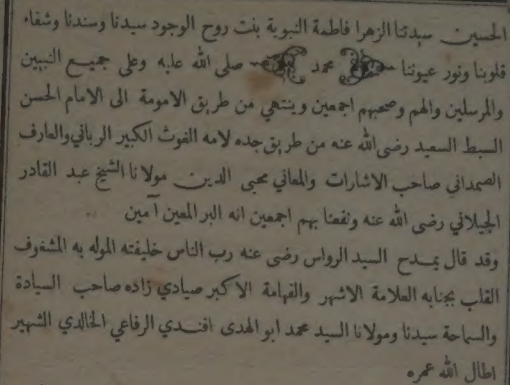 الحسين سيدتنا الزهرا فاطمة النبوية بنت روح الوجود سيدنا وسندنا وشفاء
قلوبنا ونور عيوننا محمد صلى الله عليه وعلى جميع النبيين
والمرسلين والهم وصحبهم اجمعين وينتهي من طريق الامومة الى الامام الحسن
السبط السعيد رضى الله عنه من طريق جده لامه الغوث الكبير الرباني والعارف
الصمداني صاحب الاشارات والمعاني محيى الدين مولانا الشيخ عبد القادر
الجيلاني رضى الله عنه ونفعنا بهم اجمعين انه البر المعين آمين
وقد قال بمدح السيد الرواس رضى عنه رب الناس خليفته الموله به المشغوف
القلب بجنابه العلامة الاشهر والفهامة الاكبر صيادي زاده صاحب السيادة
والسماحة سيدنا ومولانا السيد محمد ابو الهدى افندي الرفاعي الخالدي الشهير
اطال الله عمره